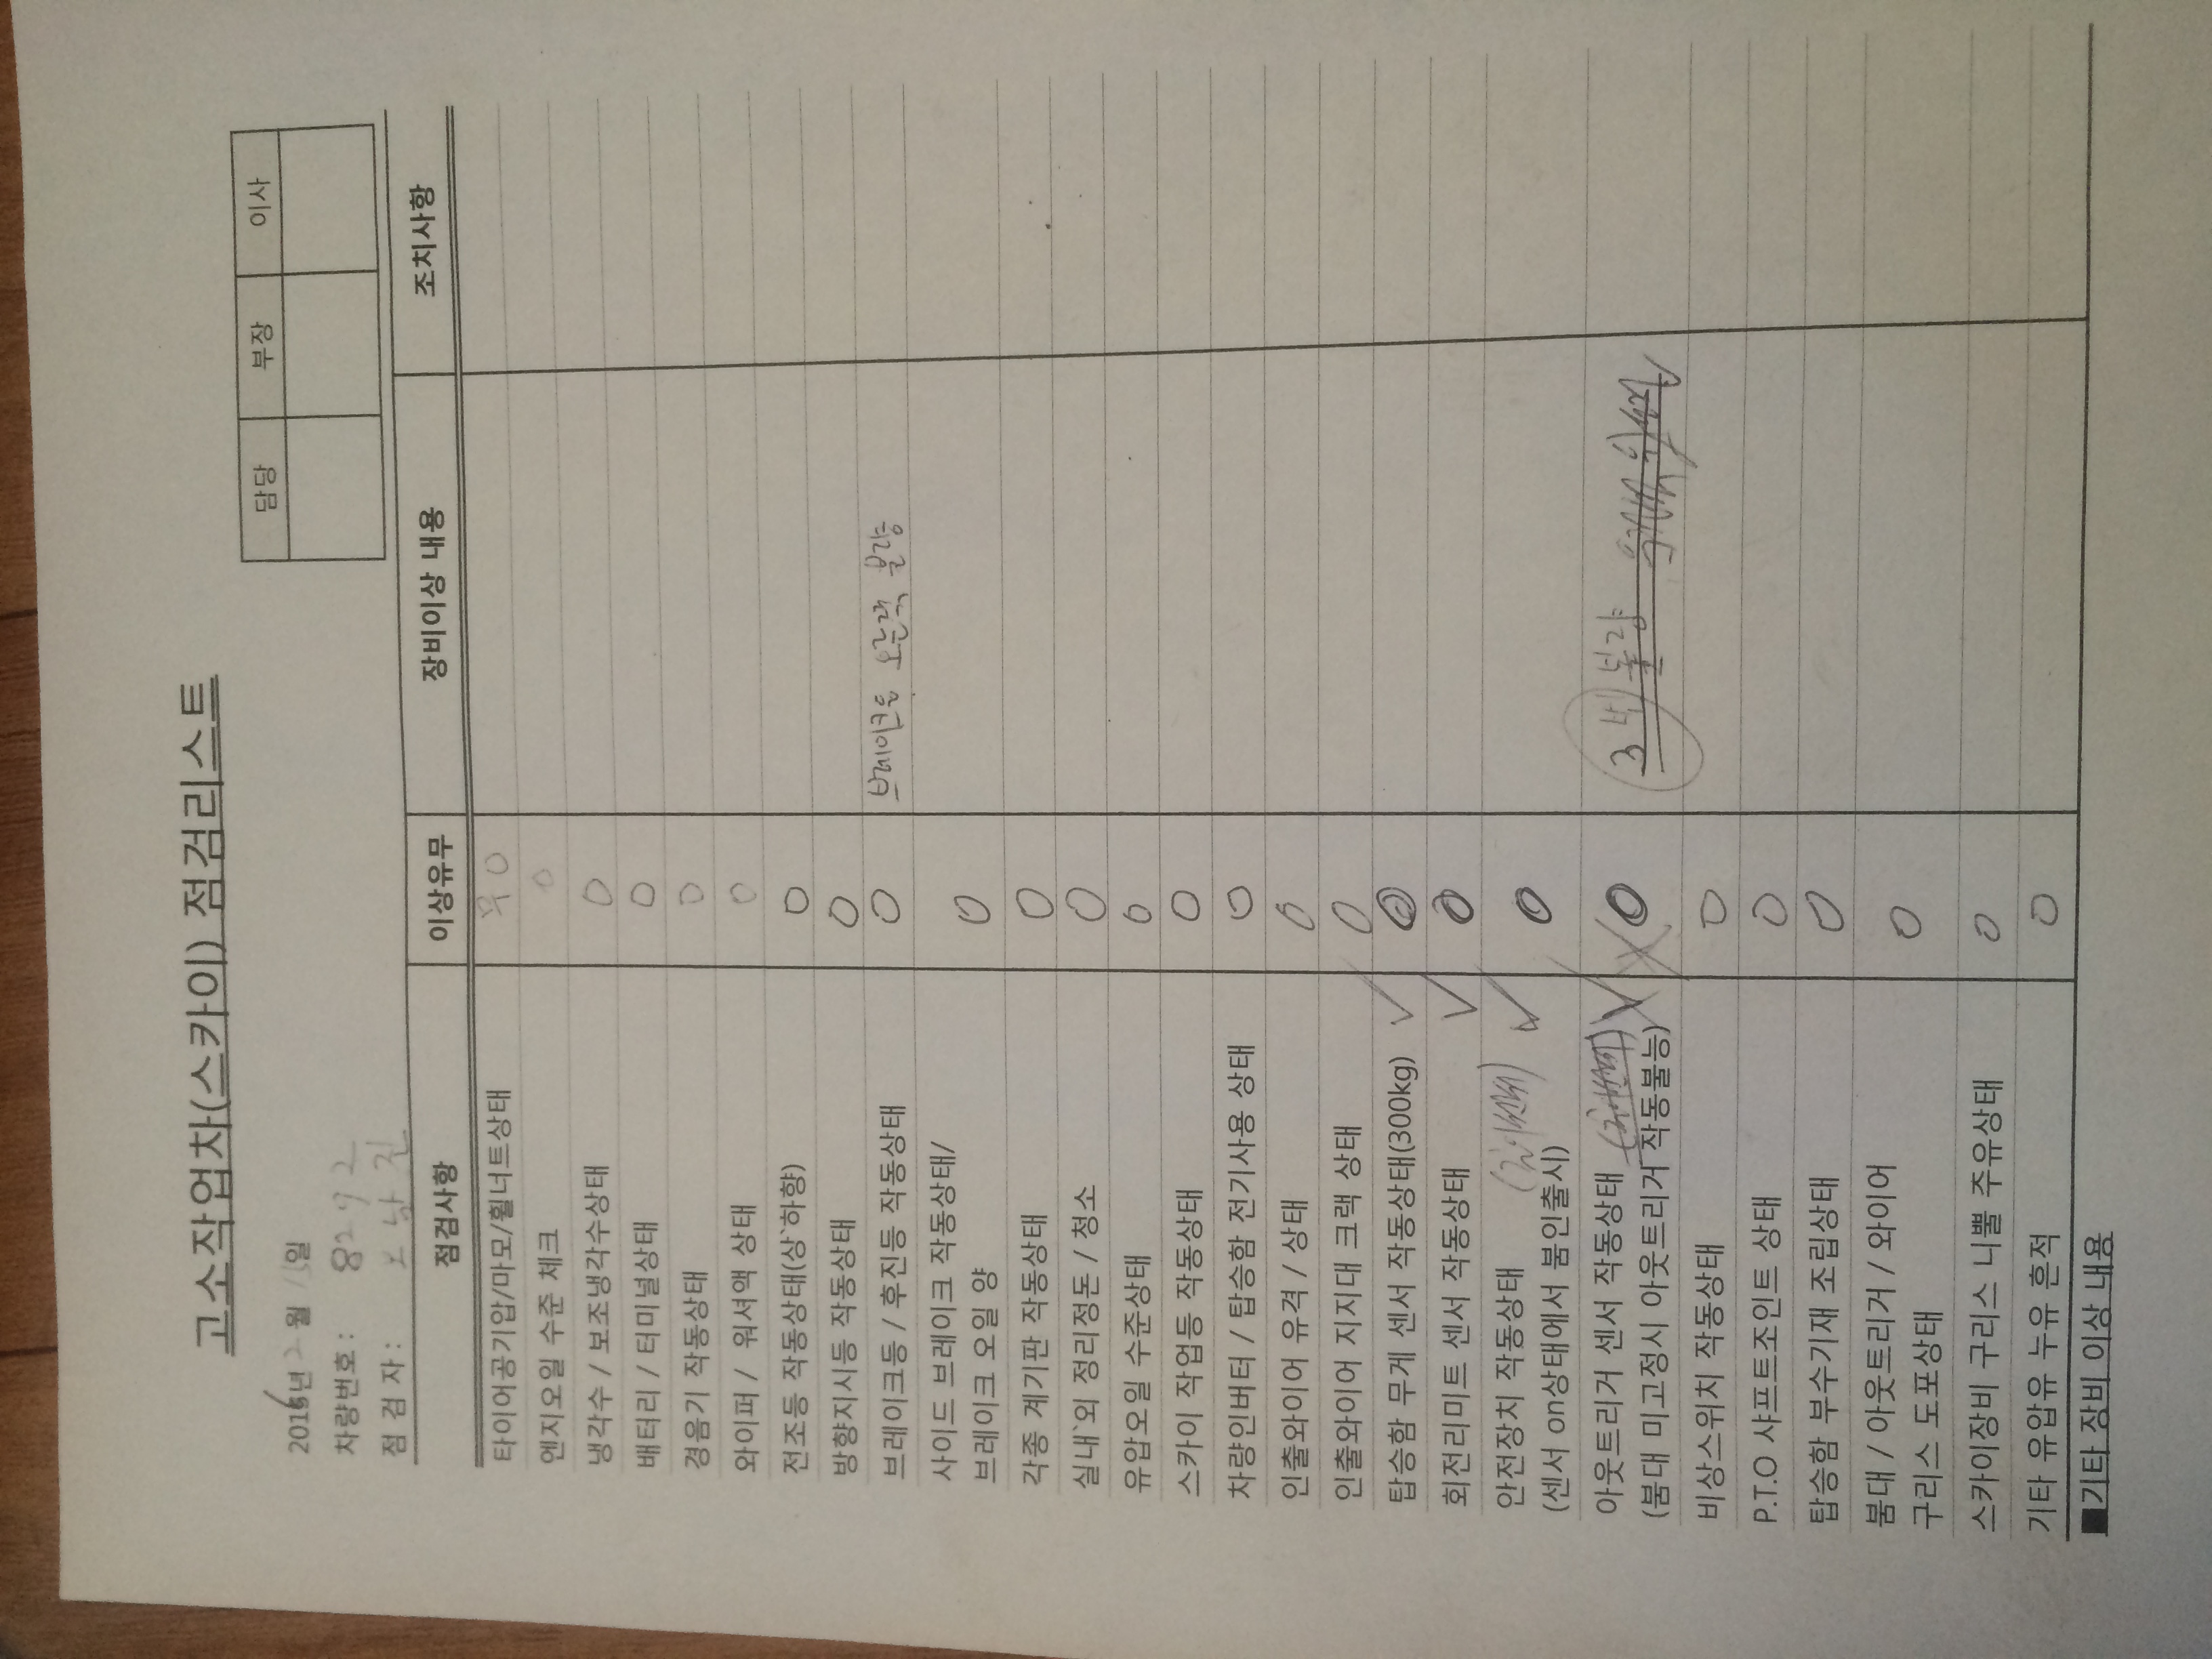 고소작업차(스카이) 점검리스트
담당 부장 이사
2016년 2월 15일
차량번호: 8272
점 검 자:
점검사항 이상유무 장비이상 내용 조치사항
타이어공기압/마모/휠너트상태 무 O
엔지오일 수준 체크 O
냉각수 / 보조냉각수상태 O
배터리 / 터미널상태 O
경음기 작동상태 O
와이퍼 / 워셔액 상태 O
전조등 작동상태(상`하향) O
방향지시등 작동상태 O
브레이크등 / 후진등 작동상태 O 브레이크등 오른쪽 불량
사이드 브레이크 작동상태/
브레이크 오일 양 O
각종 계기판 작동상태 O
실내`외 정리정돈 / 청소 O
유압오일 수준상태 O
스카이 작업등 작동상태 O
차량인버터 / 탑승함 전기사용 상태 O
인출와이어 유격 / 상태 O
인출와이어 지지대 크랙 상태 O
탑승함 무게 센서 작동상태(300kg) ✓ O
회전리미트 센서 작동상태 ✓ O
안전장치 작동상태 ✓ O
(센서 on상태에서 붐인출시)
아웃트리거 센서 작동상태 O 3번 불량
(붐대 미고정시 아웃트리거 작동불능)
비상스위치 작동상태 O
P.T.O 샤프트조인트 상태 O
탑승함 부수기재 조립상태 O
붐대 / 아웃트리거 / 와이어
구리스 도포상태 O
스카이장비 구리스 니뿔 주유상태 O
기타 유압유 누유 흔적 O
■기타 장비 이상 내용